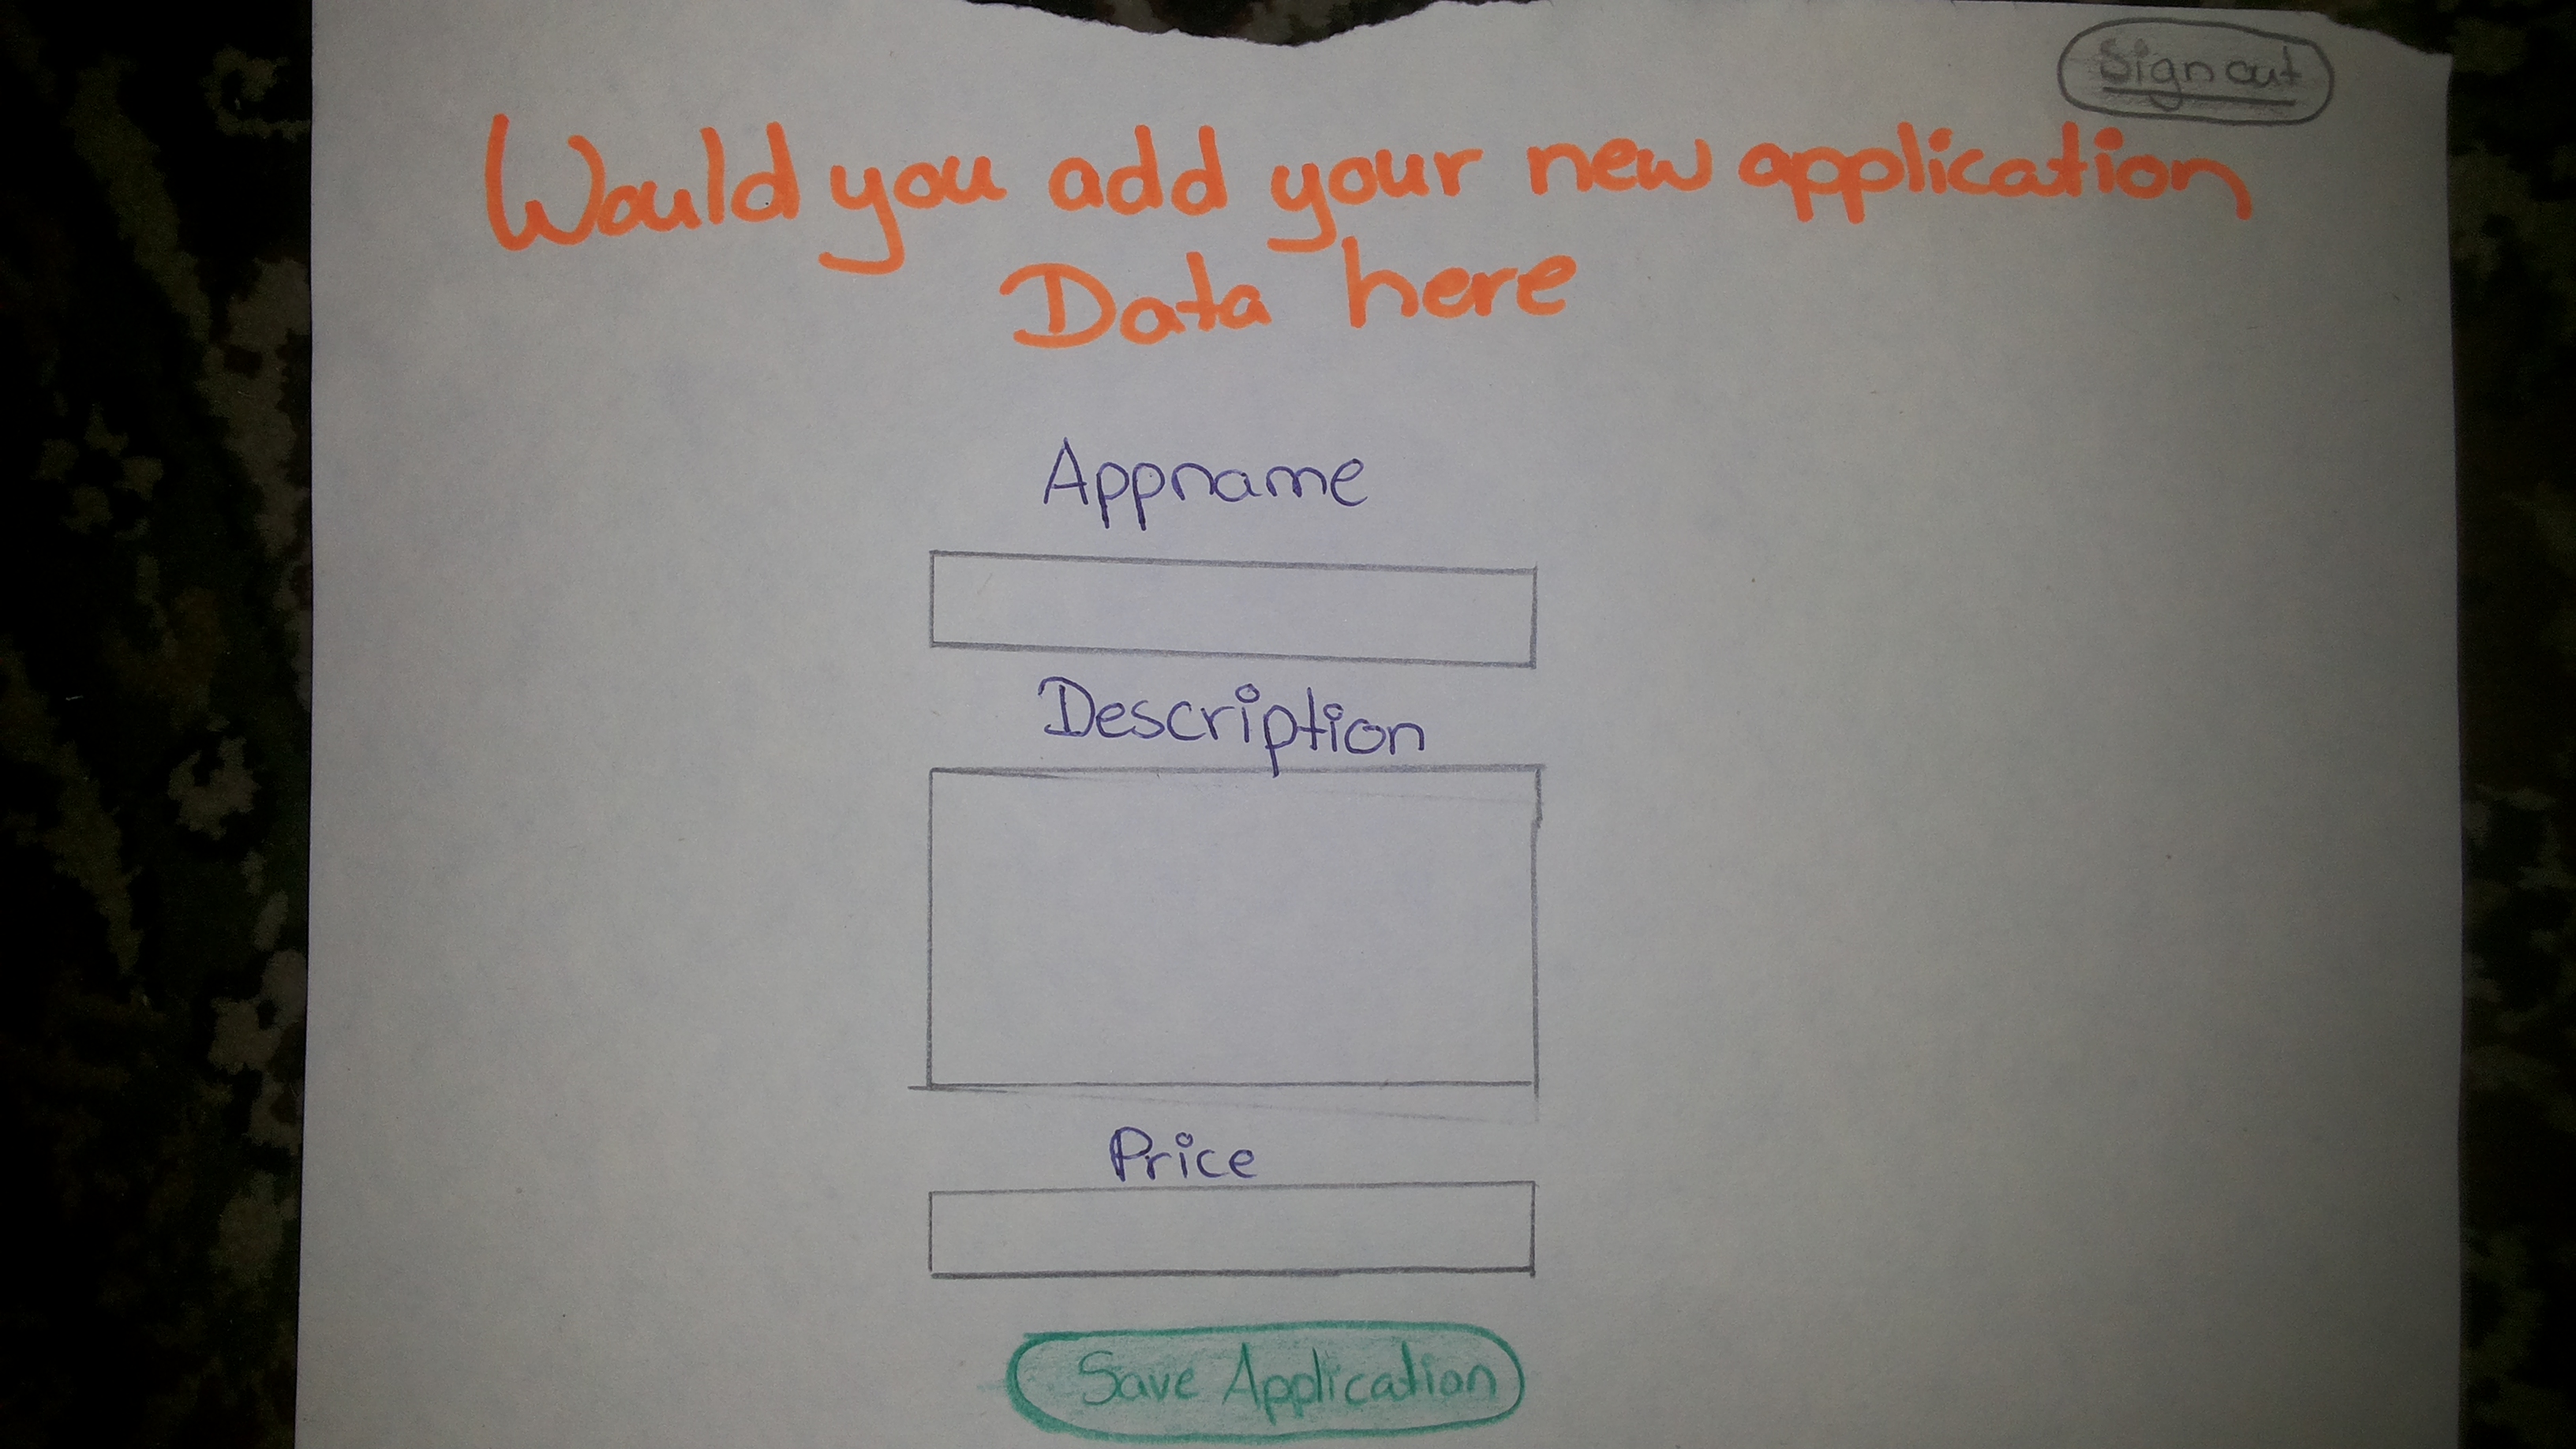 Sign out
Would you add your new application
Data here
Appname
Description
Price
Save Application